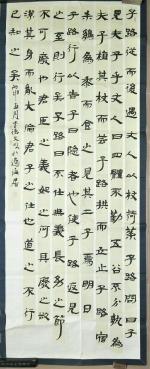 子路從而後遇丈人以杖荷蓧子路問曰子
見夫子乎丈人曰四體不勤五谷不分孰為
夫子植其杖而芸子路拱而立止子路宿
殺鷄為黍而食之見其二子焉明日
子路行以告子曰隱者也使子路返見
之至則行矣子路曰不仕無義長幼之節
不可廢也君臣之義如之何其廢之欲
潔其身而亂大倫君子之仕也道之不行
已知之矣